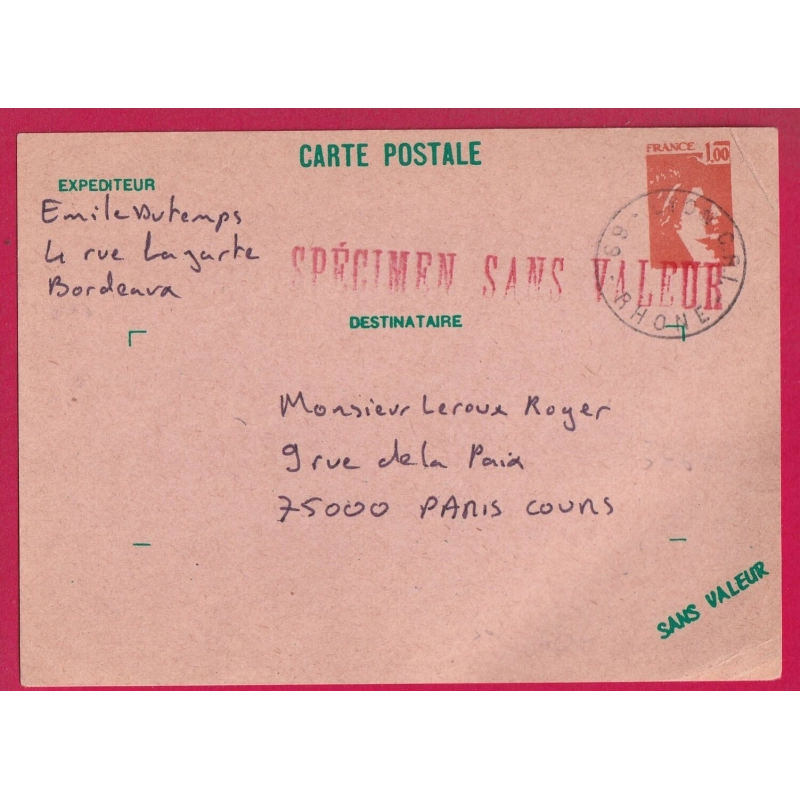 CARTE POSTALE
FRANCE 1.00
EXPEDITEUR
Emile Dutemps
4 rue Lagarte
Bordeaux
69 - LYON C.R.I - RHONE
SPÉCIMEN SANS VALEUR
DESTINATAIRE
Monsieur Leroux Roger
9 rue de la Paix
75000 PARIS COURS
SANS VALEUR